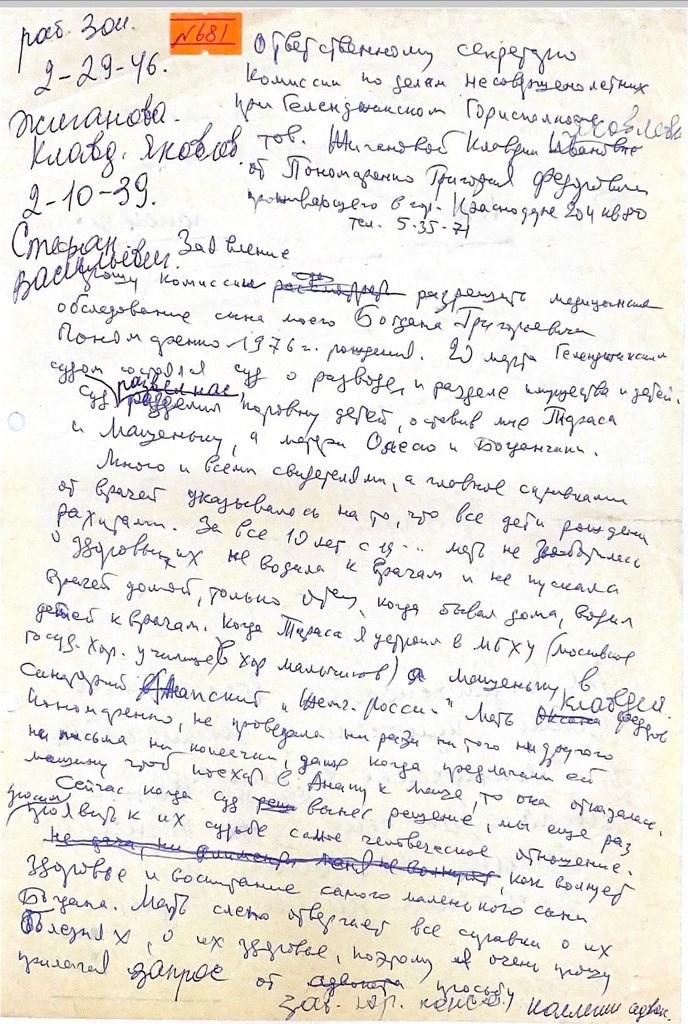 раб. Зои.
2-29-46.
Жиганова.
Клавд. Яковлев.
2-10-39.
Стефан
Васильевич.
№681
Ответственному секретарю
Комиссии по делам несовершеннолетних
при Геленджикском Горисполкоме
Яковлевне
тов. Жигановой Клавдии Ивановне
от Пономаренко Григория Федоровича
проживающего в гор. Краснодаре 204 кв 80
тел. 5-35-71
Заявление
Прошу комиссию разрешить медицинское
обследование сына моего Богдана Григорьевича
Пономаренко 1976 г. рождения. 20 марта Геленджикским
судом состоялся суд о разводе, и разделе имущества и детей.
Суд развел нас, разделил поровну детей, оставив мне Тараса
и Машеньку, а матери Олесю и Богданчика.
Много и всеми свидетелями, а главное справками
от врачей указывалось на то, что все дети рождены
рахитами. За все 10 лет с мать не заботилась
о здоровье, их не водила к врачам и не пускала
врачей домой, только отец, когда бывал дома, водил
детей к врачам. Когда Тараса я устроил в МГХУ (московское
госуд. хор. училище) в хор мальчиков) а Машеньку в
санаторий Анапский "Жемч. России" Мать Клавдия Федоров
Пономаренко, не проведала ни разу ни того ни другого
ни письма ни копеечки, даже когда предлагали ей
машину чтоб поехать в Анапу к Маше, то она отказалась.
Сейчас когда суд вынес решение, мы еще раз
просим проявить к их судьбе самое человеческое отношение.
не дача, ни алименты меня не волнуют, как волнует
здоровье и воспитание самого маленького сына
Богдана. Мать слепо отвергает все справки о их
болезнях, о их здоровье, поэтому я очень прошу
прилагая запрос от адвоката просьбу
зав. юр. конс. коллегии адвок.